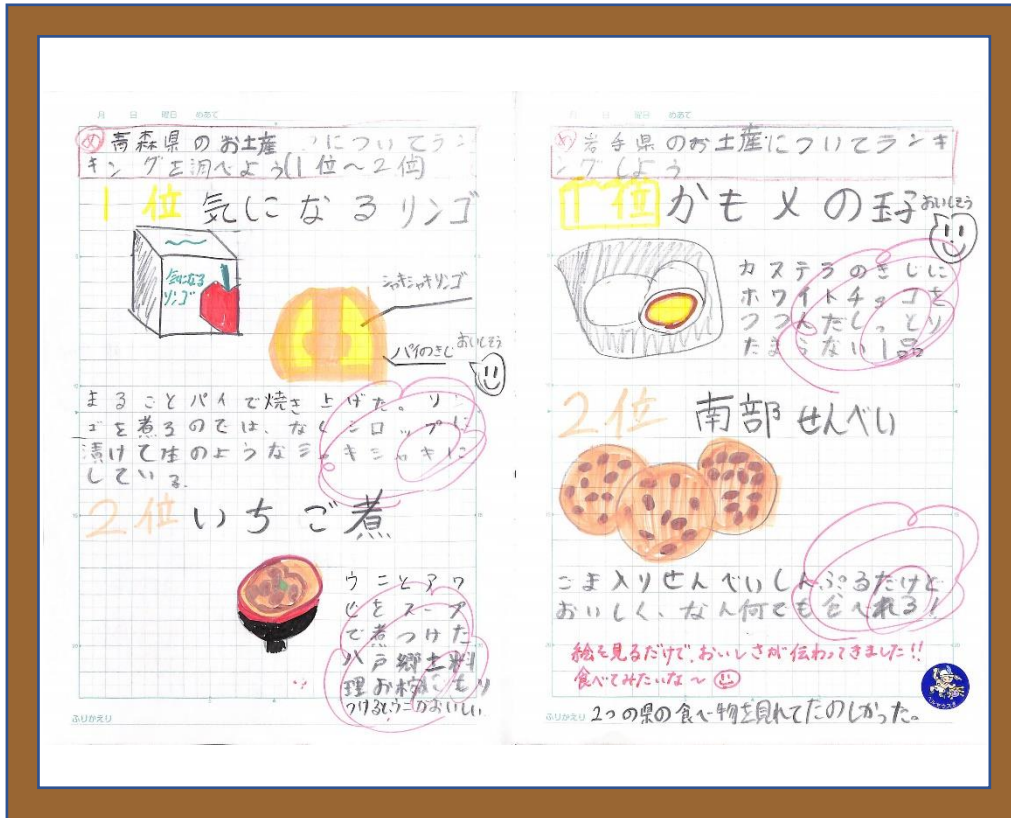 月 日 曜日 めあて
め 青森県のお土産 についてラン
キングを調べよう(1位～2位)
1位 気になるリンゴ
気になる
リンゴ
シャキシャキリンゴ
パイのきじ
おいしそう
まるごとパイで焼き上げた。リン
ゴを煮るのでは、なくシロップに
漬けて生のようなシャキシャキに
している。
2位 いちご煮
ウニとアワ
ビをスープ
で煮つけた
八戸郷土料
理お椀にもり
つけると
のおいしい
ふりかえり
月 日 曜日 めあて
め 岩手県のお土産についてランキ
ングしよう
1位 かもメの玉子
おいしそう
カステラのきじに
ホワイトチョコを
つつんだしっとり
たまらない1品
2位 南部せんべい
ごま入りせんべいしんぷるだけど
おいしく、なん何でも食べれる!
絵を見るだけで、おいしさが伝わってきました!!
食べてみたいな～
ふりかえり 2つの県の食べ物を見れてたのしかった。